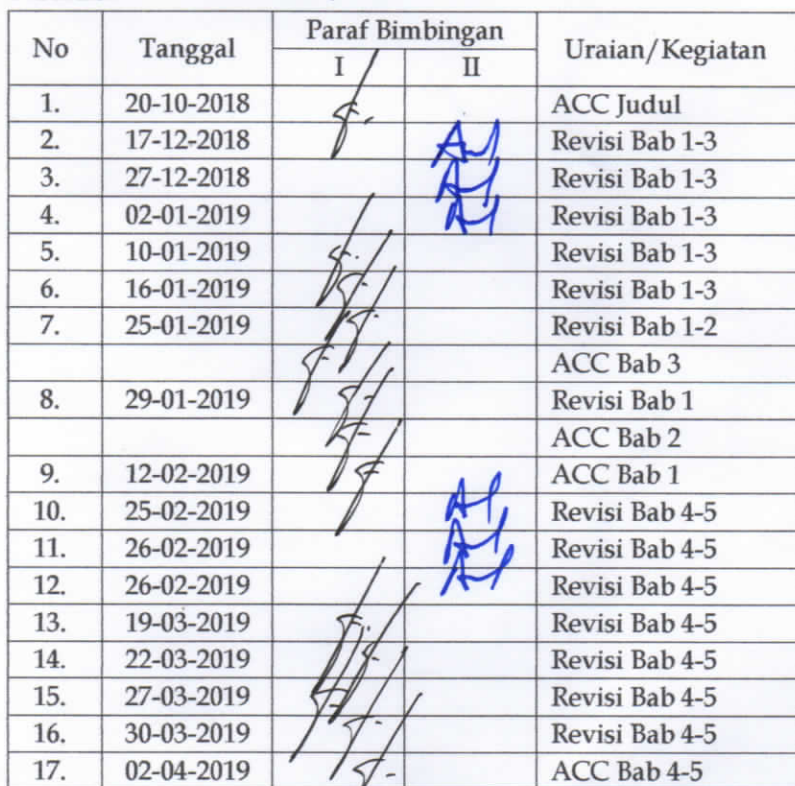 No Tanggal Paraf Bimbingan Uraian/Kegiatan
I II
1. 20-10-2018 ACC Judul
2. 17-12-2018 Revisi Bab 1-3
3. 27-12-2018 Revisi Bab 1-3
4. 02-01-2019 Revisi Bab 1-3
5. 10-01-2019 Revisi Bab 1-3
6. 16-01-2019 Revisi Bab 1-3
7. 25-01-2019 Revisi Bab 1-2
ACC Bab 3
8. 29-01-2019 Revisi Bab 1
ACC Bab 2
9. 12-02-2019 ACC Bab 1
10. 25-02-2019 Revisi Bab 4-5
11. 26-02-2019 Revisi Bab 4-5
12. 26-02-2019 Revisi Bab 4-5
13. 19-03-2019 Revisi Bab 4-5
14. 22-03-2019 Revisi Bab 4-5
15. 27-03-2019 Revisi Bab 4-5
16. 30-03-2019 Revisi Bab 4-5
17. 02-04-2019 ACC Bab 4-5